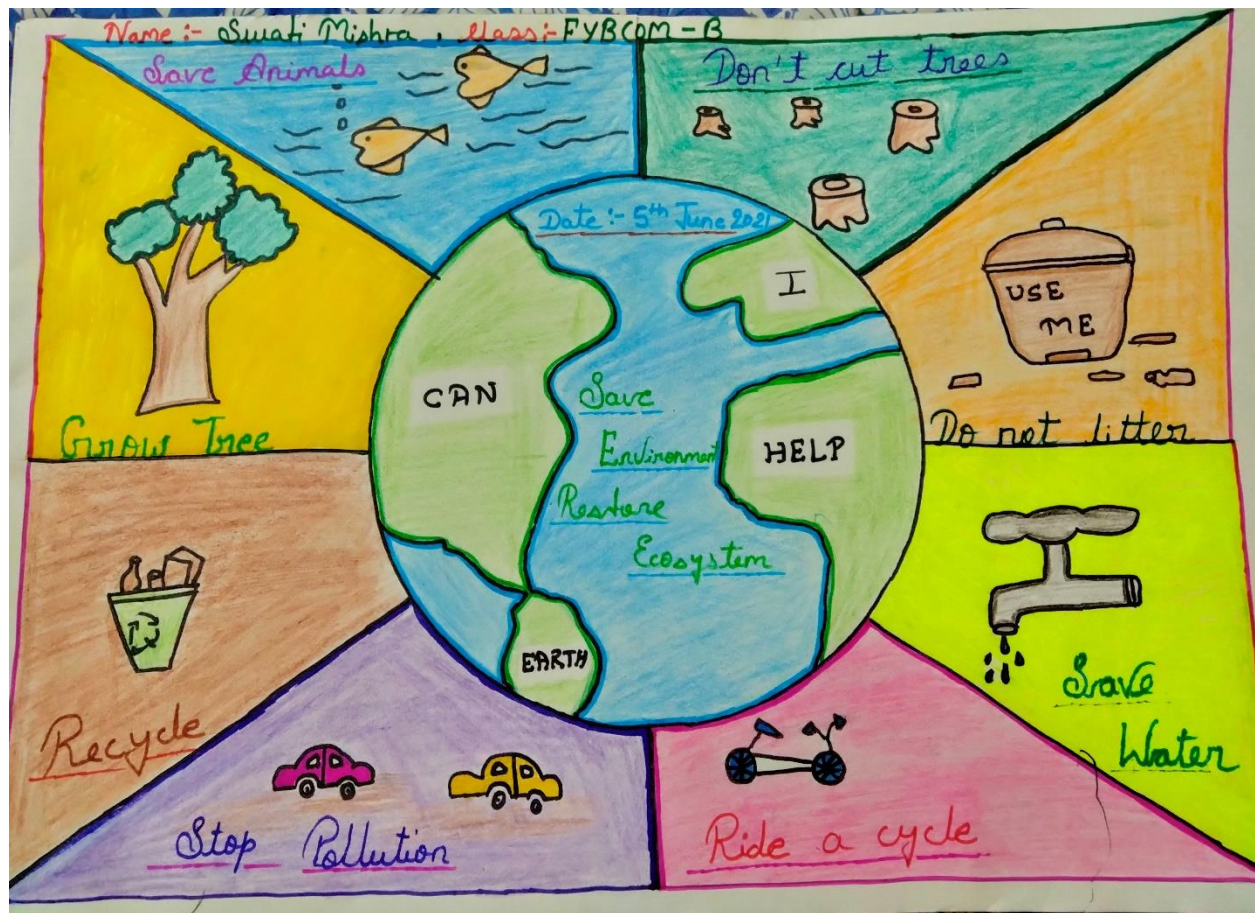 Name :- Swati Mishra , Class:- FYBCOM - B
Save Animals
Don't cut trees
Date :- 5th June 2021
I
CAN
HELP
EARTH
Save
Environment
Restore
Ecosystem
USE
ME
Do not litter
Grow Tree
Recycle
Save
Water
Stop Pollution
Ride a cycle